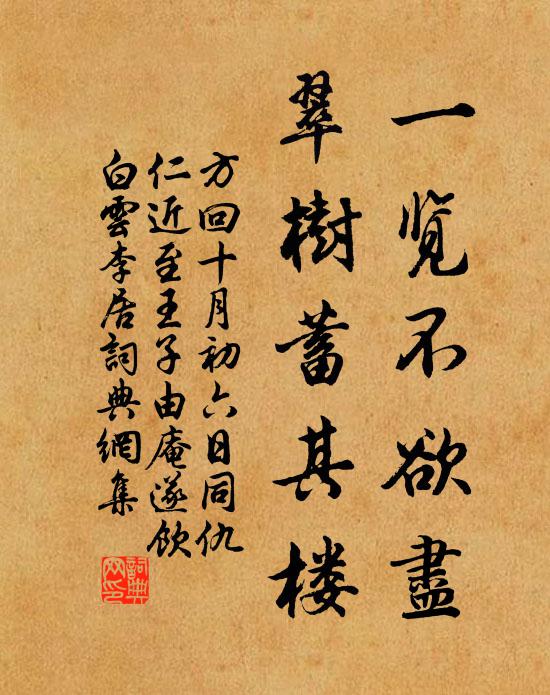 一览不欲盡
翠樹蓄其楼
方回十月初六日同仇
仁近至王子由庵遂飲
白雲李居詞典網集
詞典网印